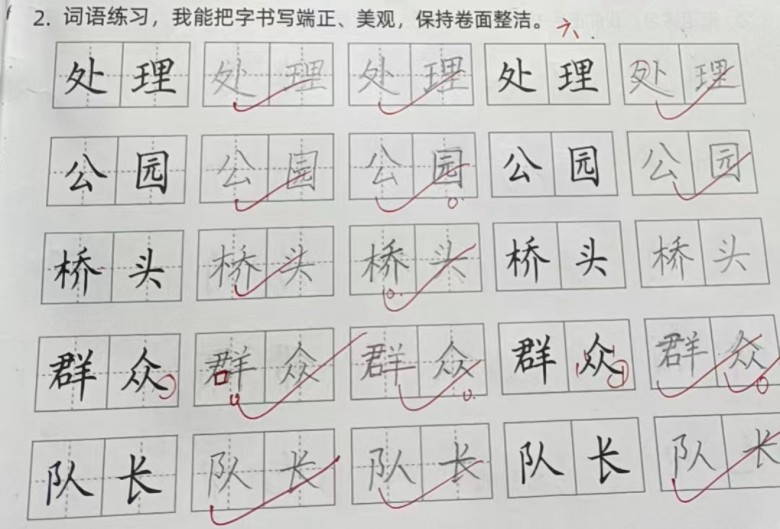 2. 词语练习，我能把字书写端正、美观，保持卷面整洁。
六
处理 处理 处理 处理 处理
公园 公园 公园 公园 公园
桥头 桥头 桥头 桥头 桥头
群众 群众 群众 群众 群众
队长 队长 队长 队长 队长